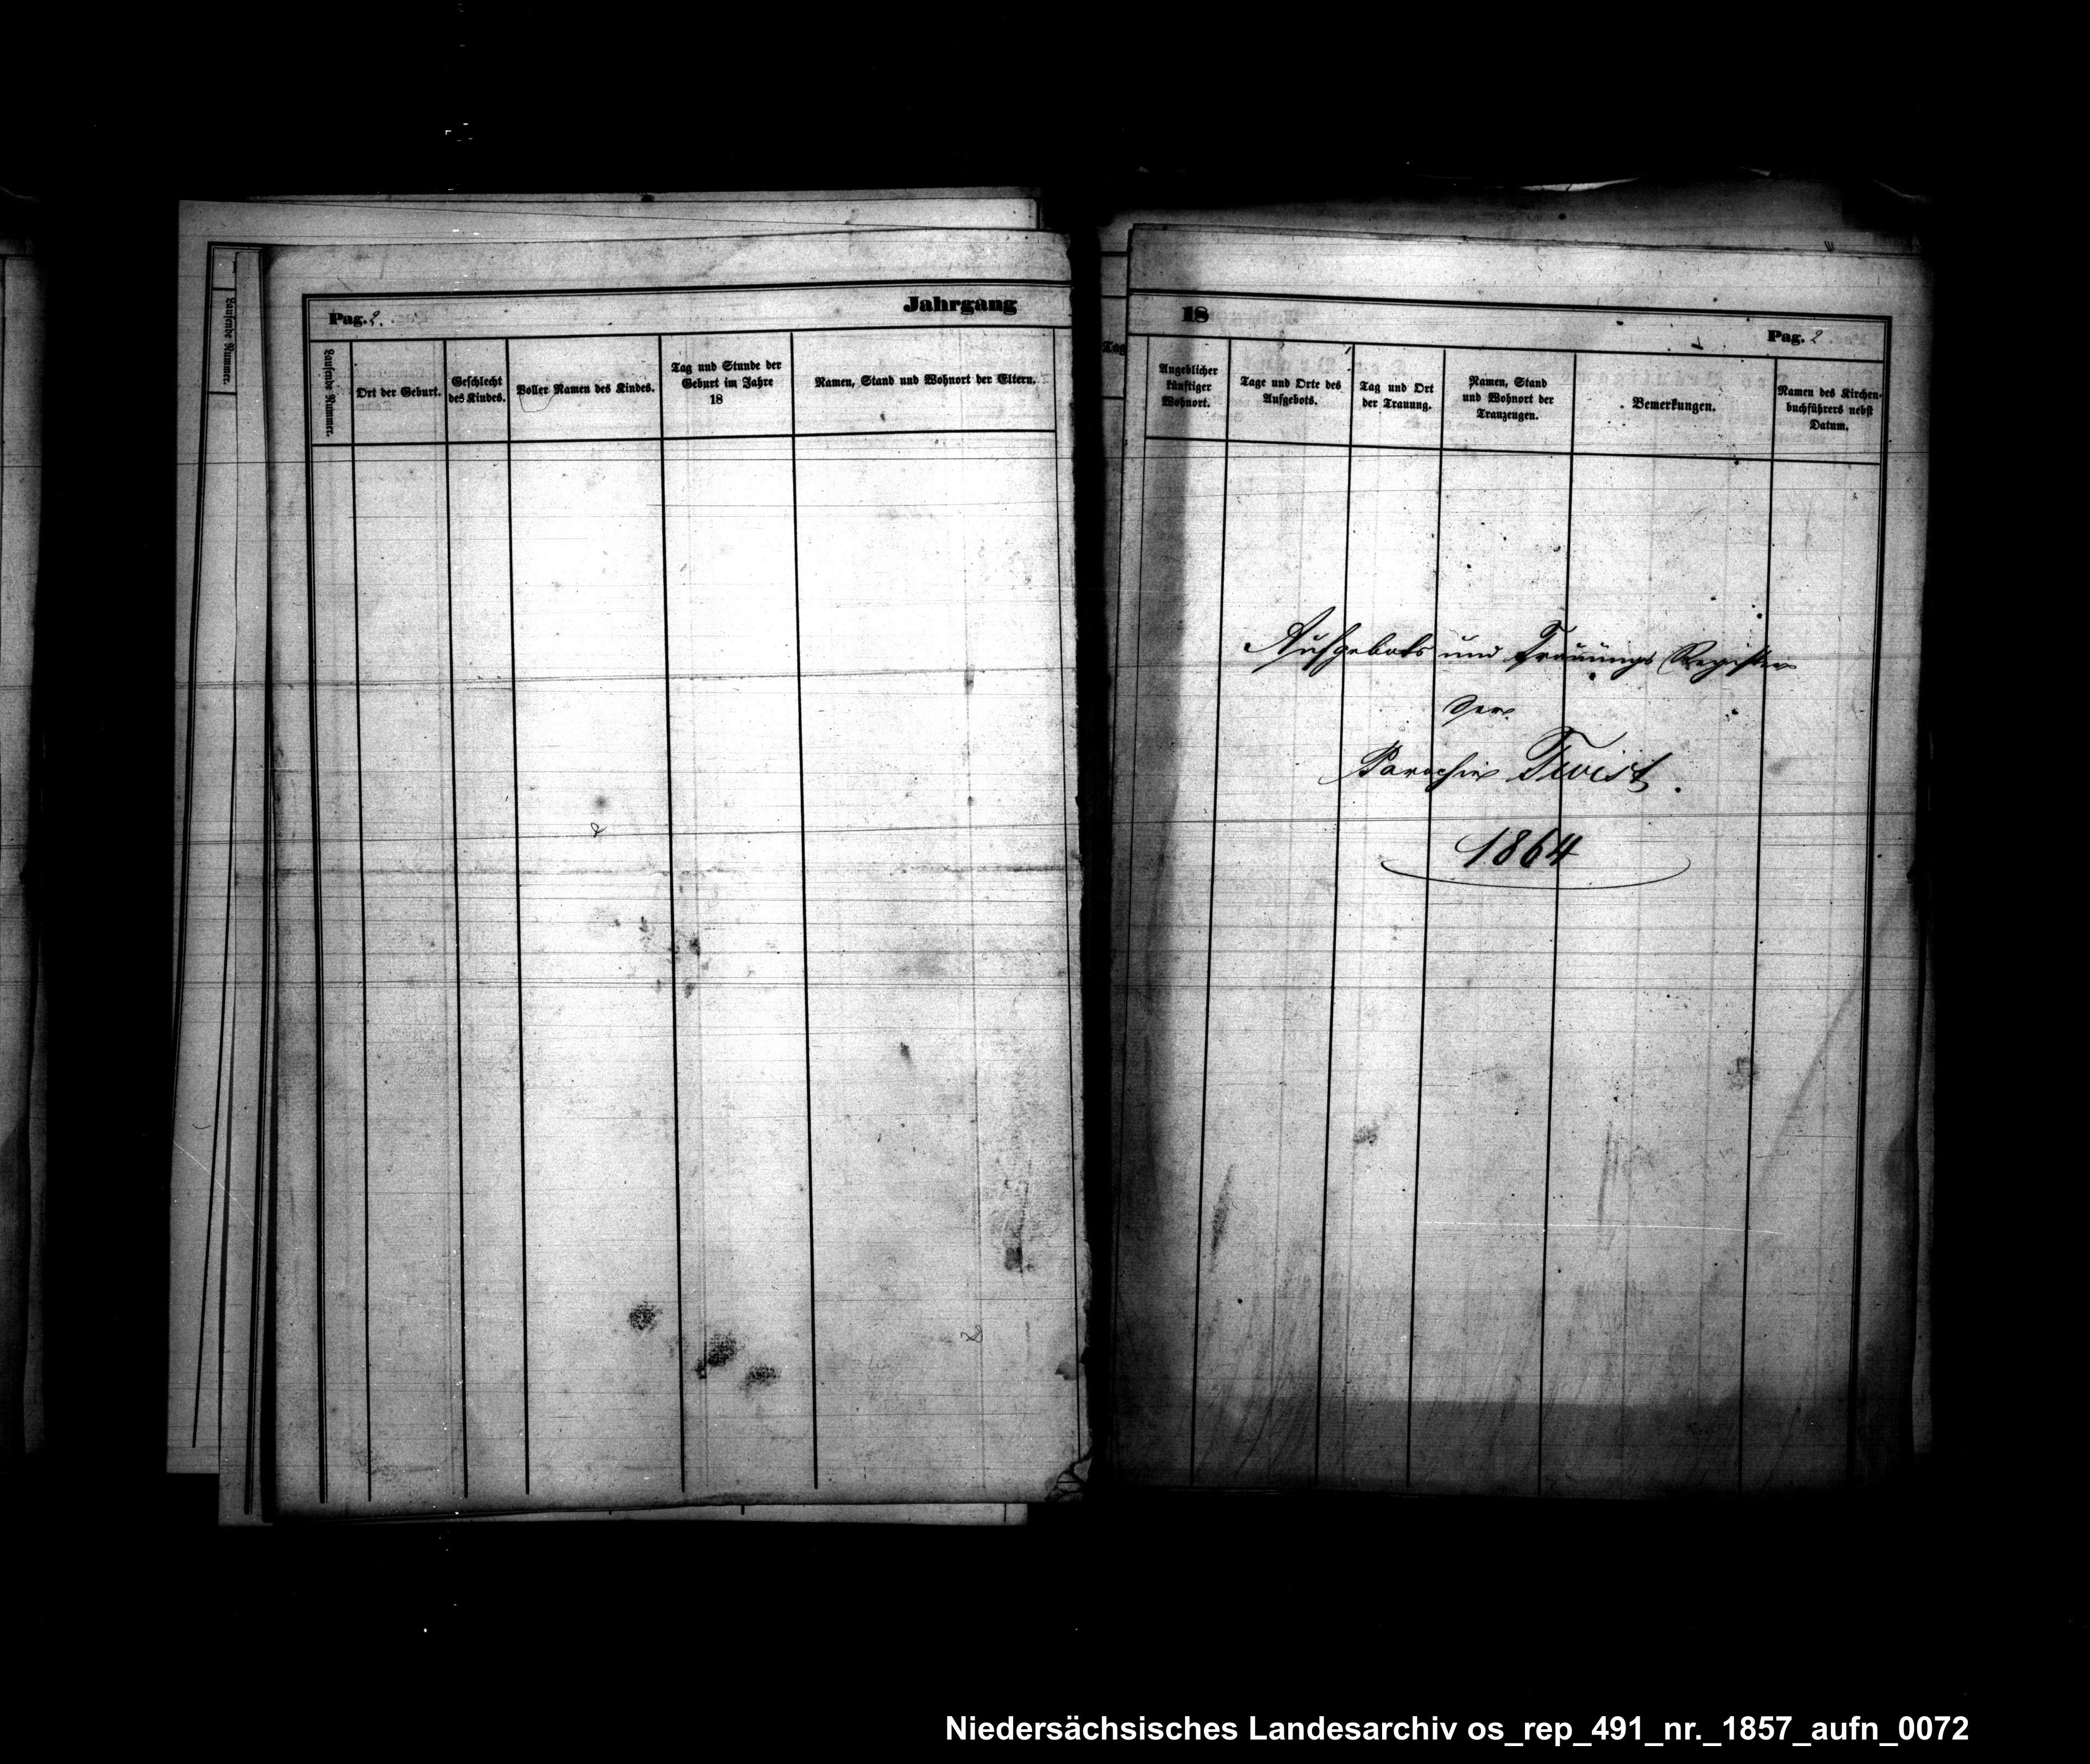 Laufende Numer.
Pag. 2.
Jahrgang
Laufende Numer.
Ort der Geburt.
Geschlecht
des Kindes.
Voller Namen des Kindes.
Tag und Stunde der
Geburt im Jahre
18
Namen, Stand und Wohnort der Eltern.
18
Pag. 2
Tag
Angeblicher
künftiger
Wohnort.
Tage und Orte des
Aufgebots.
Tag und Ort
der Trauung.
Namen, Stand
und Wohnort der
Trauzeugen.
Bemerkungen.
Namen des Kirchen-
buchführers nebst
Datum.
Aufgebots und Trauungs Register
der
Parochie Twist.
1864
Niedersächsisches Landesarchiv os_rep_491_nr._1857_aufn_0072